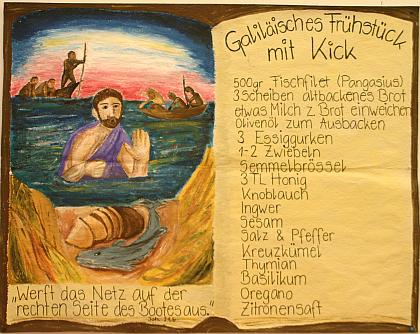 Galiläisches Frühstück
mit Kick
500gr Fischfilet (Pangasius)
3 Scheiben altbackenes Brot
etwas Milch z. Brot einweichen
Olivenöl zum Ausbacken
3 Essiggurken
1-2 Zwiebeln
Semmelbrössel
3 TL Honig
Knoblauch
Ingwer
Sesam
Salz & Pfeffer
Kreuzkümel
Thymian
Basilikum
Oregano
Zitronensaft
„Werft das Netz auf der
rechten Seite des Bootes aus."
Joh. 21,6